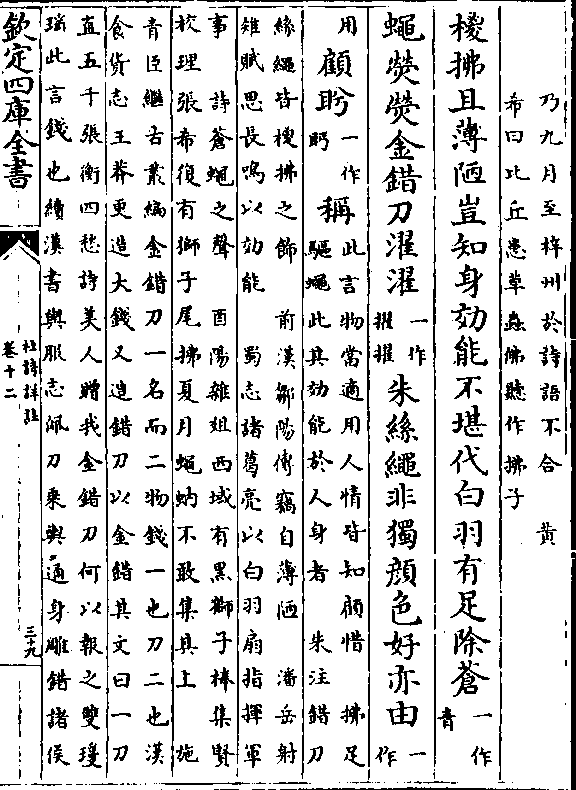 乃九月至梓州於詩語不合　黄
希曰比丘患草蟲佛聽作拂子
椶拂且薄陋豈知身効能不堪代白羽有足除蒼
一作
青
蠅熒熒金錯刀濯濯
一作
擢擢
朱絲繩非獨顔色好亦由
一
作
用顧盻
一作
眄
稱
此言物當適用人情皆知顧惜　拂足
驅蠅此其効能於人身者　朱注錯刀
絲繩皆椶拂之飾　前漢鄒陽傳竊自薄陋　潘岳射
雉賦思長鳴以効能　蜀志諸葛亮以白羽扇指揮軍
事　詩蒼蠅之聲　酉陽雜俎西域有黒獅子棒集賢
校理張希復有獅子尾拂夏月蠅蚋不敢集其上　施
青臣繼古叢編金錯刀一名而二物錢一也刀二也漢
食貨志王莽更造大錢又造錯刀以金錯其文曰一刀
直五千張衡四愁詩美人贈我金錯刀何以報之雙瓊
瑶此言錢也續漢書輿服志佩刀乘輿通身雕錯諸侯
欽定四庫全書
杜詩詳註
卷十二
三十九